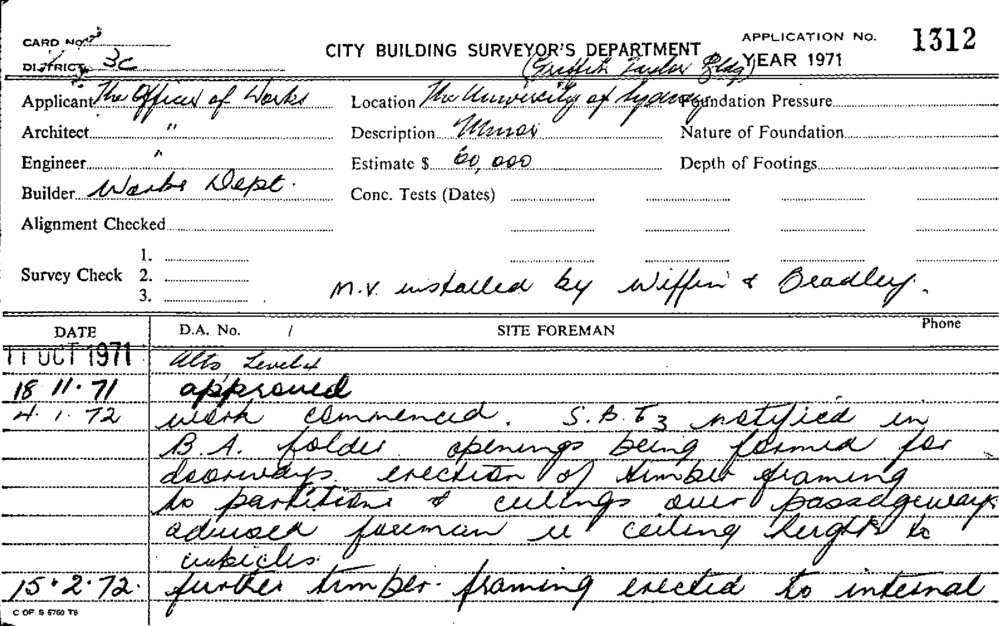 CARD No.
DISTRICT 3C
CITY BUILDING SURVEYOR'S DEPARTMENT
APPLICATION No. 1312
YEAR 1971
(Griffith Taylor Bldg)
Applicant The Officer of Works
Location The University of Sydney
Foundation Pressure
Architect "
Description Minor
Nature of Foundation
Engineer "
Estimate $ 60,000
Depth of Footings
Builder Works Dept.
Conc. Tests (Dates)
Alignment Checked
Survey Check 1.
2.
3.
M.V. installed by Wiffin & Bradley.
DATE D.A. No. / SITE FOREMAN Phone
11 OCT 1971 Alts Level 4
18 11. 71 approved
4. 1. 72 work commenced. S.B.T3 notified in
B.A. folder openings being formed for
doorways. erection of timber framing
to partitions & ceilings over passageways
advised foreman re ceiling heights to
cubicles.
15. 2. 72. further timber framing erected to internal
C OF S 6760 T6